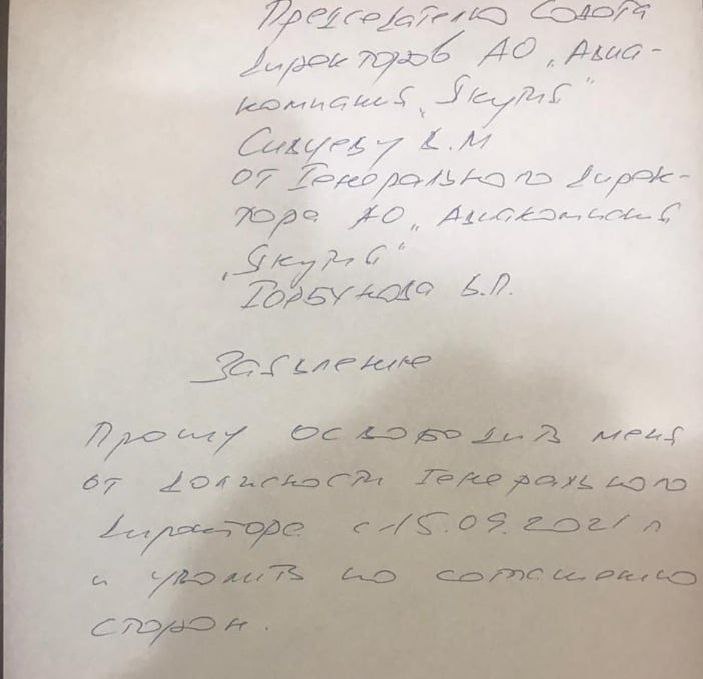 Председателю Совета
директоров АО „Авиа-
компания „Якутия"
Сивцеву В.М
от Генерального дирек-
тора АО „Авиакомпания
„Якутия"
Горбунова В.П.
Заявление
Прошу освободить меня
от должности Генерального
директора с 15.09.2021 г
и уволить по соглашению
сторон.